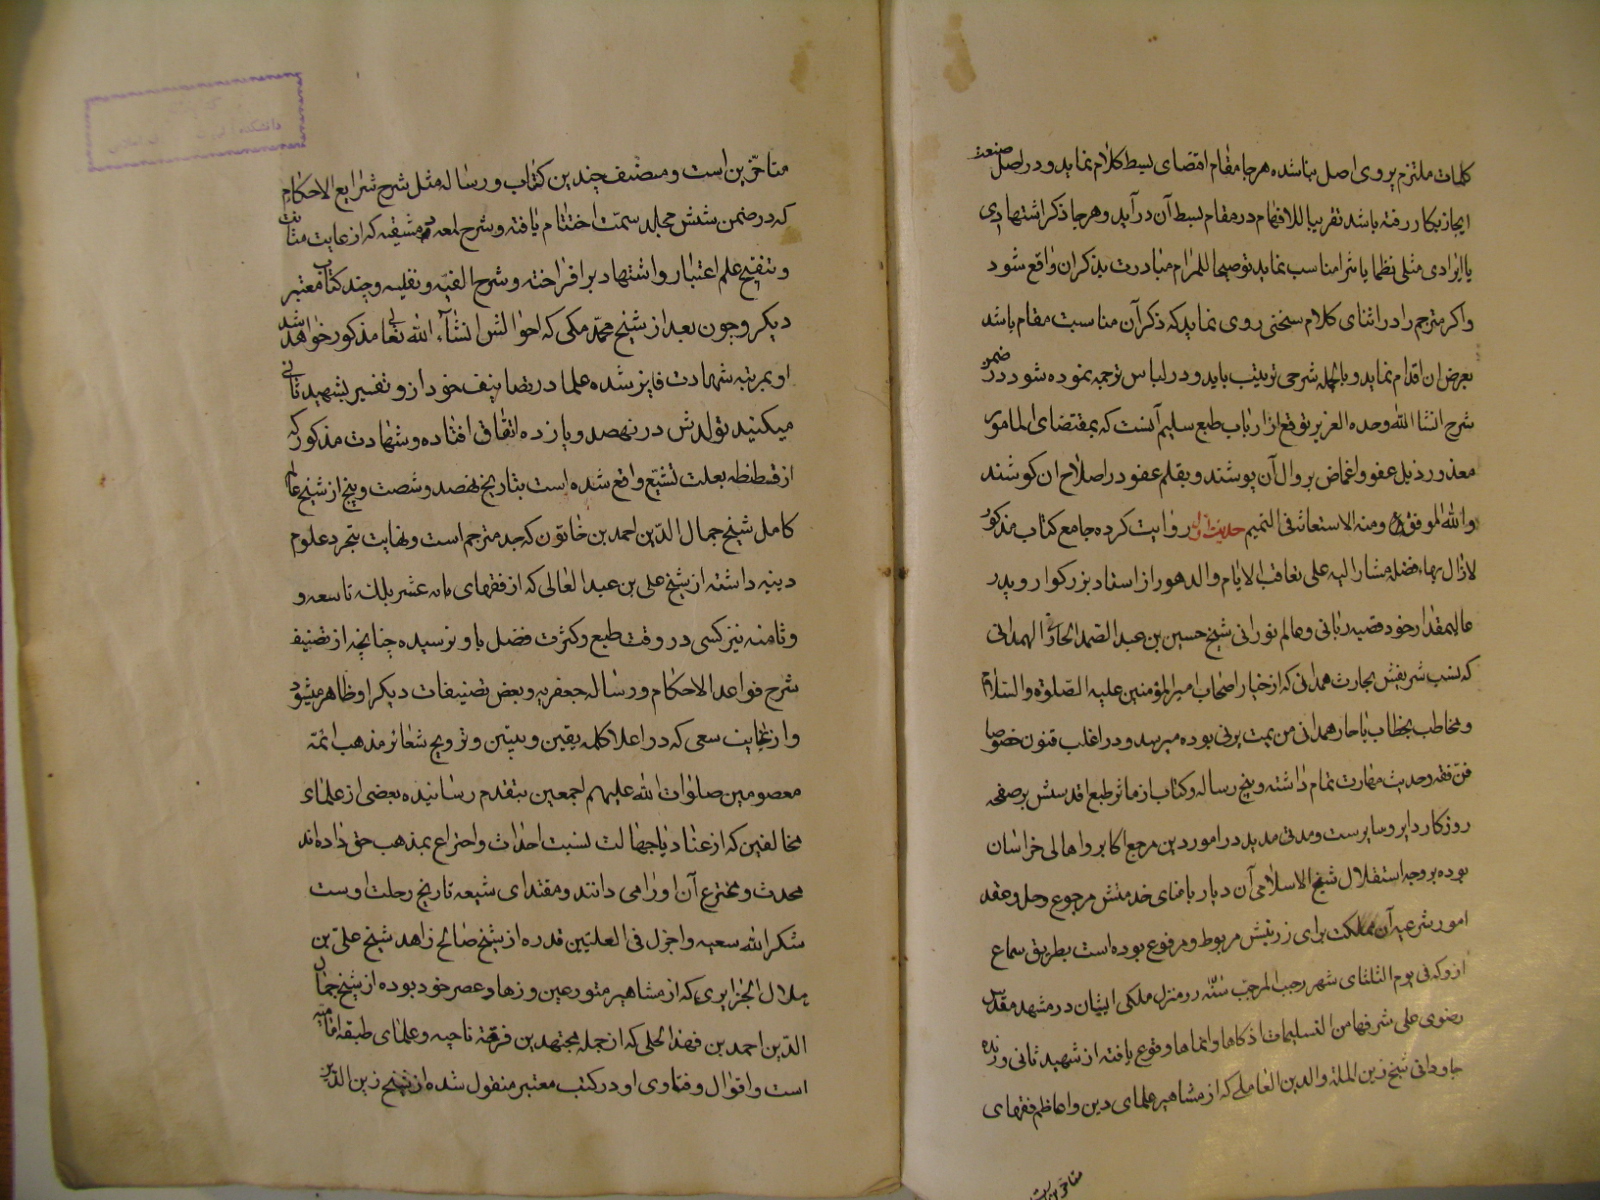 کلمات ملتزم پیروی اصل نباشده هر جا مقام اقتضای بسط کلام نماید و در اصل صنعت
ایجاز بکار رفته باشد تقریبا للافهام در مقام بسط آن در آید و هر جا ذکر اشتهادی
یا ایرادی مثلی نظما یا نثرا مناسب نماید توضیحا للمرام مبادرت بذکر ان واقع شود
واکر مترجم را در اثنای کلام سخنی روی نماید که ذکر آن مناسبت مقام باشد
بعرض ان اقدام نماید و بالجمله شرحی ترتیب یابد و در لباس ترجمه نموده شود در ضمن
شرح انشا الله وحده العزیز توقع از ارباب طبع سلیم آنست که بمقتضای المامور
معذور ذیل عفو و اغماض بر وال آن پوشند و بقلم عفو در اصلاح ان کوشند
والله الموفق ومنه الاستعانة فی التتمیم حدیث اول روایت کرده جامع کتاب مذکور
لازال بهاء فضله مشار الیه علی تعاقب الایام والدهور از استاد بزرکوار و پدر
عالیمقدار خود فقیه ربانی و عالم نورانی شیخ حسین بن عبد الصمد الحارثی الهمدانی
که نسب شریفش بحارث همدانی که از خیار اصحاب امیر المؤمنین علیه الصلوة والسلام
و مخاطب بخطاب یا حار همدان من یمت یرنی بوده میرسد و در اغلب فنون خصوصا
فن فقه و حدیث مهارت تمام داشته و پنج رساله و کتاب از ماثر طبع اقدسش بر صفحه
روزکار دایر و سایرست و مدتی مدید در امور دین مرجع اکابر و اهالی خراسان
بوده بر وجه استقلال شیخ الاسلامی آن دیار بامنای خدمتش مرجوع و حل و عقد
امور شرعیه آن مملکت برای زرینش مربوط و مرفوع بوده است بطریق سماع
ازو که فی یوم الثلثای شهر رجب المرجب در منزل ملکی ایشان در مشهد مقدس
رضوی علی مشرفها من التسلیمات اذکاها و انماها وقوع یافته از شهید ثانی و زنده
جاودانی شیخ زین الملة والدین العاملی که از مشاهیر علمای دین و اعاظم فقهای
متاخرین است
متاخرین است و مصنف چندین کتاب و رساله مثل شرح شرایع الاحکام
که در ضمن شش مجلد سمت اختتام یافته و شرح لمعه دمشقیه که از غایت متانت
و تنقیح علم اعتبار و اشتهاد برافراخته و شرح الفیه و نفلیه و چند کتاب معتبر
دیکر و چون بعد از شیخ محمد مکی که احوالش انشآء الله تعالی مذکور خواهد شد
او بمرتبه شهادت فایز شده علما در تصانیف خود ازو تفسیر بشهید ثانی
میکنند تولدش در نهصد و یازده اتفاق افتاده و شهادت مذکور که
از قسطنطه بعلت تشیع واقع شده است بتاریخ نهصد و شصت و پنج از شیخ عالم
کامل شیخ جمال الدین احمد بن خاتون که جد مترجم است و نهایت تبحر در علوم
دینیه داشته از شیخ علی بن عبد العالی که از فقهای مائه عشر بلکه تاسعه و
و ثامنه نیز کسی در وقت طبع و کثرت فضل باو نرسیده چنانچه از تصنیف
شرح قواعد الاحکام و رساله جعفریه و بعض تصنیفات دیکر او ظاهر میشود
و از غایت سعی که در اعلا کلمه یقین و تبیین و ترویج شعائر مذهب ائمة
معصومین صلوات الله علیهم اجمعین بتقدم رسانیده بعضی از علماء
مخالفین که از عناد یا جهالت نسبت احداث و اختراع بمذهب حق داده اند
محدث و مخترع آن او را می دانند و مقتدای شیعه تاریخ رحلت اوست
شکر الله سعیه و اجزل فی العلیین قدره از شیخ صالح زاهد شیخ علی بن
هلال الجزایری که از مشاهیر متورعین و زهاد عصر خود بوده از شیخ جمال
الدین احمد بن فهد الحلی که از جمله مجتهدین فرقهٔ ناجیه و علمای طبقه امامیه
است و اقوال و فتاوی او در کتب معتبر منقول شده از شیخ زین الدین